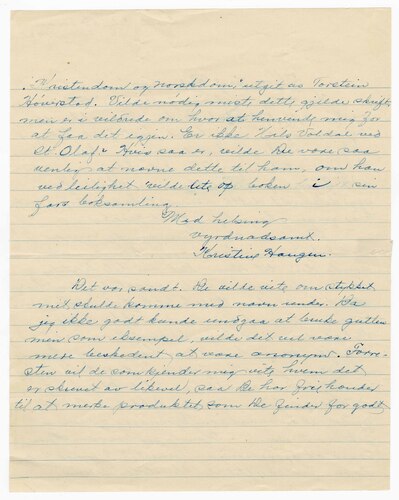 "Kristendom og norskdom," utgit av Torstein
Höverstad. Vilde nödig miste dette gjilde skrift,
men er i vilrede om hvor at henvende mig for
at faa det igjen. Er ikke Nils Voldal ved
St Olaf? Hvis saa er, vilde De være saa
venlig at nævne dette til ham, om han
ved leilighet vilde lete op boken i sin
fars boksamling.
Med helsing
vyrdnadsamt.
Kristine Haugen.
Det var sandt. De vilde vite om stykket
mit skulde komme med navn under. Da
jeg ikke godt kunde undgaa at bruke gutten
min som eksempel, vilde det vel være
mere beskedent at være anonym. Forre-
sten vil de som kjender mig vite hvem det
er skrevet av likevel, saa De har frie hænder
til at merke produktet som De finder for godt,